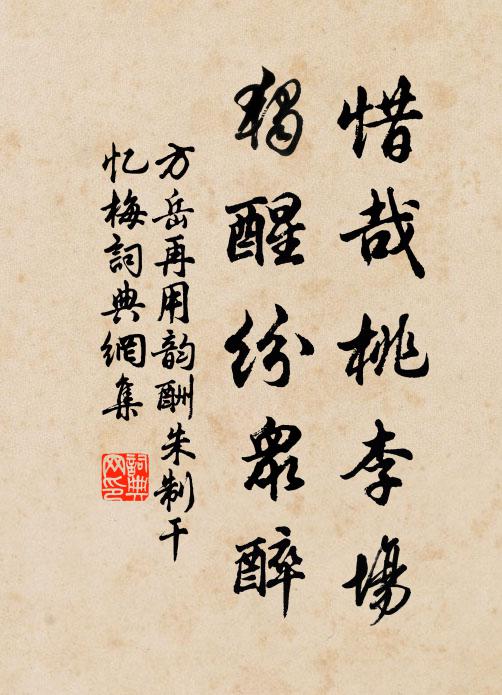 惜哉桃李場
獨醒紛衆醉
方岳再用韵酬朱制干
忆梅詞典網集
詞典网印